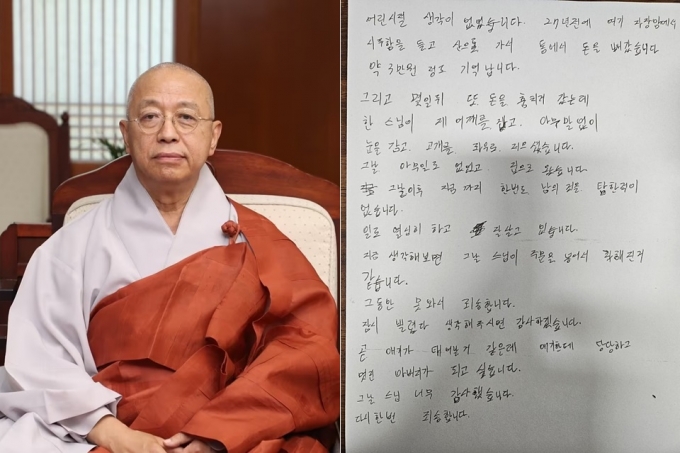 어린시절 생각이 없었습니다. 27년전에 여기 자장암에서
시주함을 들고 산으로 가서 통에서 돈을 빼갔습니다
약 3만원 정도 기억납니다.
그리고 몇일뒤 또 돈을 훔치러 갔는데
한 스님이 제 어깨를 잡고. 아무말없이
눈을 감고. 고개를 좌우로 저으셨습니다.
그날 아무일도 없었고. 집으로 왔습니다
그날이후 지금까지 한번도 남의 것을 탐한적이
없습니다.
일도 열심히 하고 잘살고 있습니다.
지금 생각해보면 그날 스님이 주문을 넣어서 착해진거
같습니다.
그동안 못와서 죄송합니다.
잠시 빌렸다 생각해주시면 감사하겠습니다.
곧 애기가 태어날거 같은데 애기한테 당당하고
멋진 아버지가 되고 싶습니다.
그날 스님 너무 감사했습니다.
다시한번 죄송합니다.